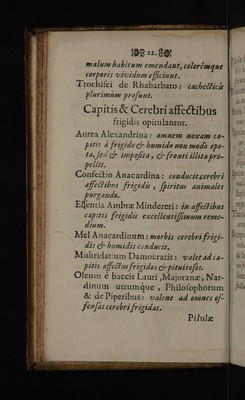 12.
malum habitum emendant, colorémque
corporis vividum efficiunt.
Trochisci de Rhabarbaro: cachecticis
plurimùm prosunt.
Capitis & Cerebri affectibus
frigidis opitulantur.
Aurea Alexandrina: omnem noxam ca-
pitis à frigido & humido non modò epo-
ta, sed & imposita, & fronti illita pro-
pellit.
Confectio Anacardina: conducit cerebri
affectibus frigidis, spiritus animales
purgando.
Essentia Ambræ Mindereri: in affectibus
capitis frigidis excellentissimum reme-
dium.
Mel Anacardinum: morbis cerebri frigi-
dis & humidis conducit.
Mithridatium Damocratis: valet ad ca-
pitis affectus frigidos & pituitosos.
Oleum è baccis Lauri, Majoranæ, Nar-
dinum utrumque, Philosophorum
& de Piperibus: valent ad omnes of-
fensas cerebri frigidas.
Pilulæ